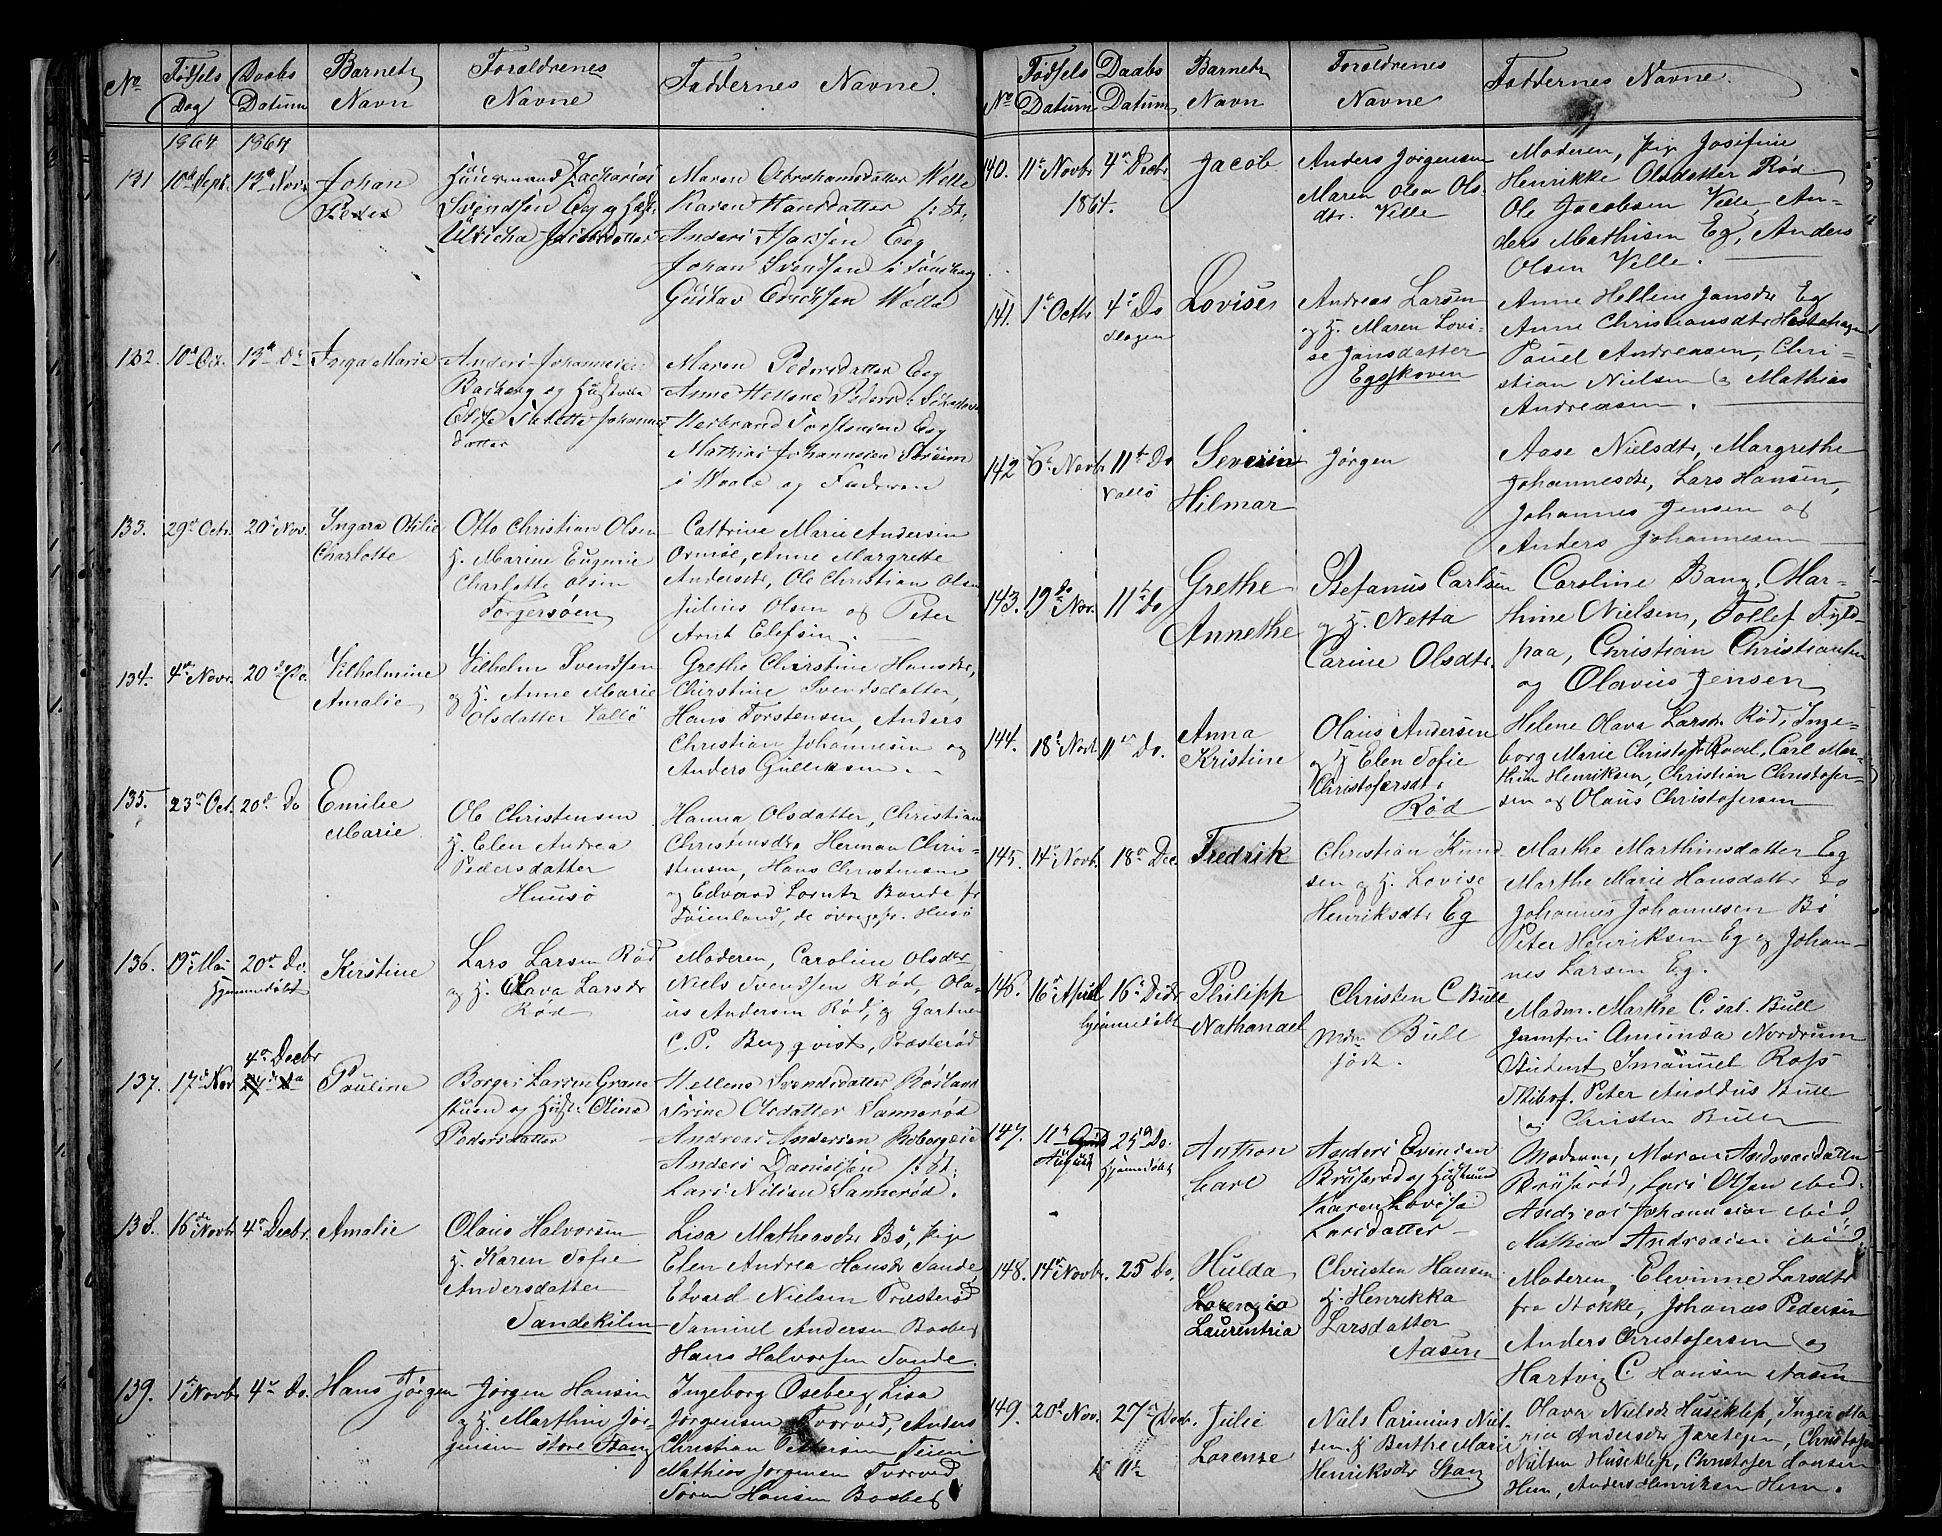 No
Fødsels Dag
Daabs Datum
Barnets Navn
Forældrenes Navne
Faddernes Navne.
1864 1864
131 10de Septr. 13de Novr. Johan Peder
Huusmand Zacharias
Svendsen Eeg og Hustr.
Ulricha Jacobsdatter
Maren Abrahamsdatter Welle
Karen Hansdatter
Anders Isaksen Eeg
Johan Svendsen i Tønsberg
Gustav Erichsen Wælle
132. 10de Oct. 13de Do Inga Marie
Anders Johannesen
Bacherg og Hustrue
Else Johannes
datter
Maren Pedersdatter Eeg
Anne Hellene Pedersd.
Herbrand Torstensen Eeg
Mathias Johannesen
i Waale og Faderen
133. 29de Octr. 20de Nov. Ingara Otilie
Charlotte
Otto Christian Olsen
H. Marine Eugenie
Charlotte Olsen
Torgersøen
Cathrine Marie Andersen
Ormøe, Anne Margrethe
Andersdr, Ole Christian Olsen
Julius Olsen og Peter
Arnt Elefsen.
134. 4de Novr. 20de Do. Vilhelmine
Amalie
Vilhelm Svendsen
og H. Anne Marie
Olsdatter Vallö
Grethe Christine Hansdr,
Christine Svendsdatter,
Hans Torstensen, Anders
Christian Johannesen og
Anders Gulliksen.
135. 23de Oct. 20de Do Emilie
Marie
Ole Christensen
H. Elen Andrea
Pedersdatter
Huusö
Hanna Olsdatter, Christian
Christensdr Herman Chri-
stensen, Hans Christensen
og Edvard Lorentz Bonde fr
Föienland, de övrige fr. Husö
136. 19de Mai 20de Do. Kirstine
hjemmedöbt
Lars Larsen Röd
og H. Olava Larsdr
Röd
Moderen, Caroline Olsdr
Niels Svendsen Röd, Ola-
us Andersen Röd, og Gartner
C. P. Bergqvist, Præsteröd
4de Decbr
137. 17de Nov. Pauline
Borger Larsen Gran-
stuen og Hust. Oline
Pedersdatter
Hellene Svendsdatter
Trine Olsdatter Sannerød
Andreas Andersen
Anders Danielsen
Lars Nilsen Sannerød.
138. 16de Novbr 4de Decbr. Amalie
Olaus Halvorsen
H. Karen Sofie
Andersdatter
Sandekilen
Lisa Matheasdr Bö, pige
Elen Andrea Hansdr Sande,
Edvard Nielsen Præsteröd
Samuel Andersen Basberg
Hans Halvorsen Sande.
139. 1de Novbr 4de Do. Hans Jørgen
Jørgen Hansen
og H. Marthine Jör-
gensen store Stang
Ingeborg Oseberg, Lisa
Jørgensen Torved, Anders
Christian Pettersen Teien
Mathias Jørgensen Torved
Søren Hansen Basberg
No
Fødsels Datum
Daabs Datum
Barnets Navn
Forældrenes Navne
Faddernes Navne.
140. 11te Novbr 4de Decbr Jacob
1864.
Anders Jörgensen
Maren Olea Ols-
dtr. Velle
Moderen, pige Josifine
Henrikke Olsdatter Röd
Ole Jacobsen Velle, An-
ders Mathisen Eg, Anders
Olsen Velle.
141. 1de Octbr 4de Do Lovise
Slagen
Andreas Larsen
og H. Maren Lovi-
se Jansdatter
Egeskoven
Anne Hellene Jansdr Eg
Anne Christiansdtr Hestehagen
Pauel Andreasen, Chri-
stian Nielsen og Mathias
Andreasen.
142 6te Novbr. 11te Do Severin
Vallö
Hilmar
Jørgen
Aase Nielsdtr, Margrethe
Johannesdr, Lars Hansen,
Johannes Jensen og
Anders Johannesen
143. 19de Nov. 11te Do Grethe
Annethe
Stefanus Carlsen
og H. Netta
Carine Olsdtr.
Caroline Bang, Mar-
thine Nielsen, Tollef Fyld-
paa, Christian Christiansen
og Olavus Jensen
144. 18de Novb. 11te Do. Anna
Kristine
Olaus Andersen
og H. Elen Sofie
Christofersdtr
Röd
Helene Olava Larsdr Röd, Inge-
borg Marie Christofr Rovel, Carl Mar-
thin Henriksen, Christian Christofer-
sen og Olaus Christofersen
145. 14de Novb. 18de Dec. Fredrik
Christian Knud
sen og H. Lovise
Henriksdtr Eg
Marthe Marthinsdatter Eg
Marthe Marie Hansdatter Do
Johannes Johannesen Bö
Peter Henriksen Eg og Johan-
nes Larsen Eg.
146. 16de April 16de Decbr Philipp
hjemmedöbt
Nathanael
Christen C Bull
Bull
födt
Madm. Marthe C. sal. Bull
Jomfru Amunda Nordrum
Student Imanuel Ross
Skibsf. Peter Anoldus Bull
og Christen Bull
147. 11te August 25de Do. Anthon
hjemmedöbt
Carl
Anders Evensen
Bruserød og Hustrue
Karen Lovise
Larsdatter
Moderen, Maren Andreasdatter
Bruserød, Lars Olsen ibid.
Andreas Johannesen ibid
Mathias Andreasen ibid.
148. 14de Novbr. 25 Do. Hulda
Laurentzia
Christen Hansen
H. Henrikka
Larsdatter
Aasen
Moderen, Elevinne Larsdtr
fra Stokke, Johanas Pedersen
Anders Christofersen og
Hartvig C Hansen Aasen
149. 20de Nov. 27de Decb. Julie
Lorense
Niels Carinius Niel-
sen. H. Berthe Marie
Henriksdr Stang
Olava Nielsdr Husiklep, Inger Ma-
ria Andersdr Jaretegen, Christofer
Nielsen Husiklep, Christofer Hansen
Hem, Anders Henriksen Hem.